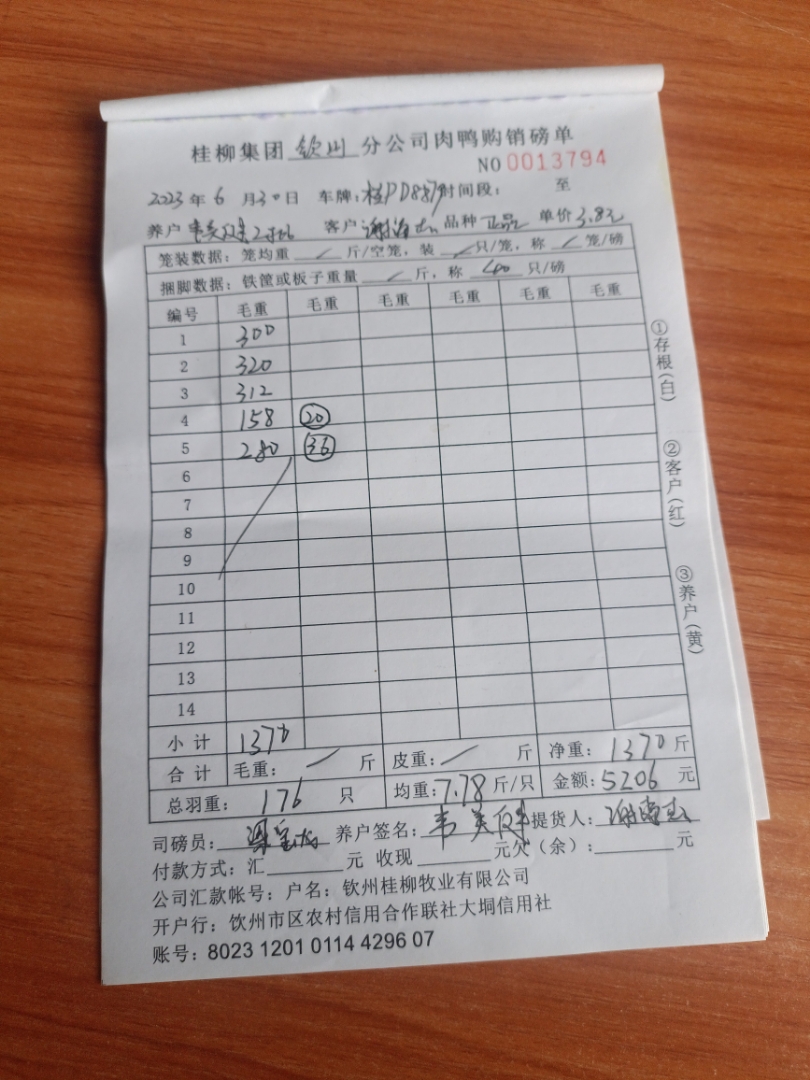 桂柳集团 钦州 分公司肉鸭购销磅单
NO 0013794
2023年 6月30日 车牌：桂PD887 时间段： 至
养户 客户 谢海 品种 正品 单价 3.8元
笼装数据：笼均重 / 斤/空笼，装 / 只/笼，称 / 笼/磅
捆脚数据：铁筐或板子重量 / 斤，称 40 只/磅
编号 毛重 毛重 毛重 毛重 毛重 毛重
1 300
2 320
3 312
4 158 20
5 280 36
6
7
8
9
10
11
12
13
14
小计 1370
合计 毛重： / 斤 皮重： / 斤 净重：1370斤
总羽重： 176 只 均重：7.78斤/只 金额：5206元
司磅员： 养户签名：韦 提货人：谢海
付款方式：汇 元 收现 元欠（余）： 元
公司汇款帐号：户名：钦州桂柳牧业有限公司
开户行：钦州市区农村信用合作联社大垌信用社
账号：8023 1201 0114 4296 07
①存根（白）
②客户（红）
③养户（黄）